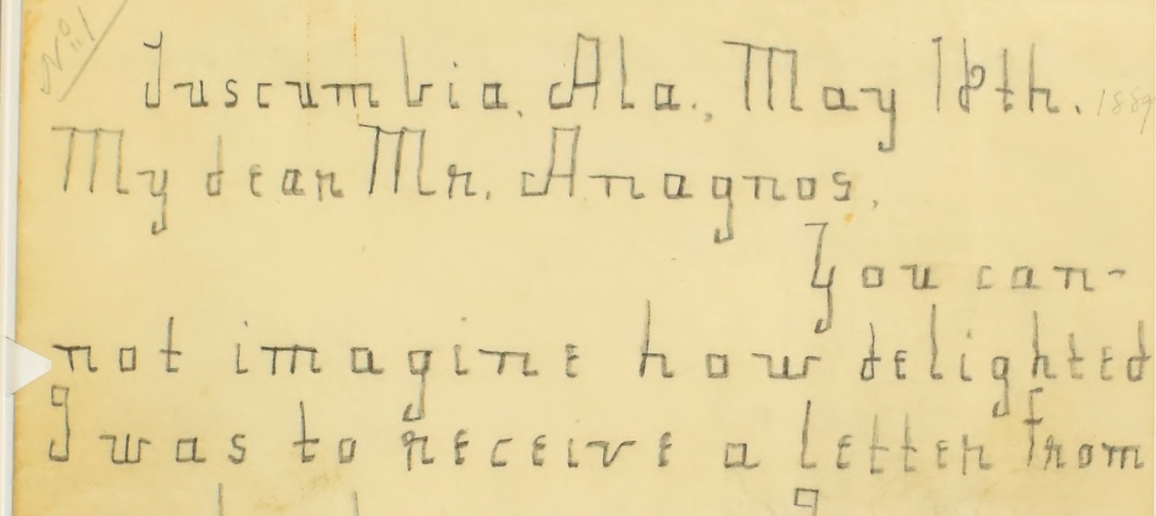 No. 1
Tuscumbia, Ala., May 18th. 1889
My dear Mr. Anagnos,
You can-
not imagine how delighted
I was to receive a letter from